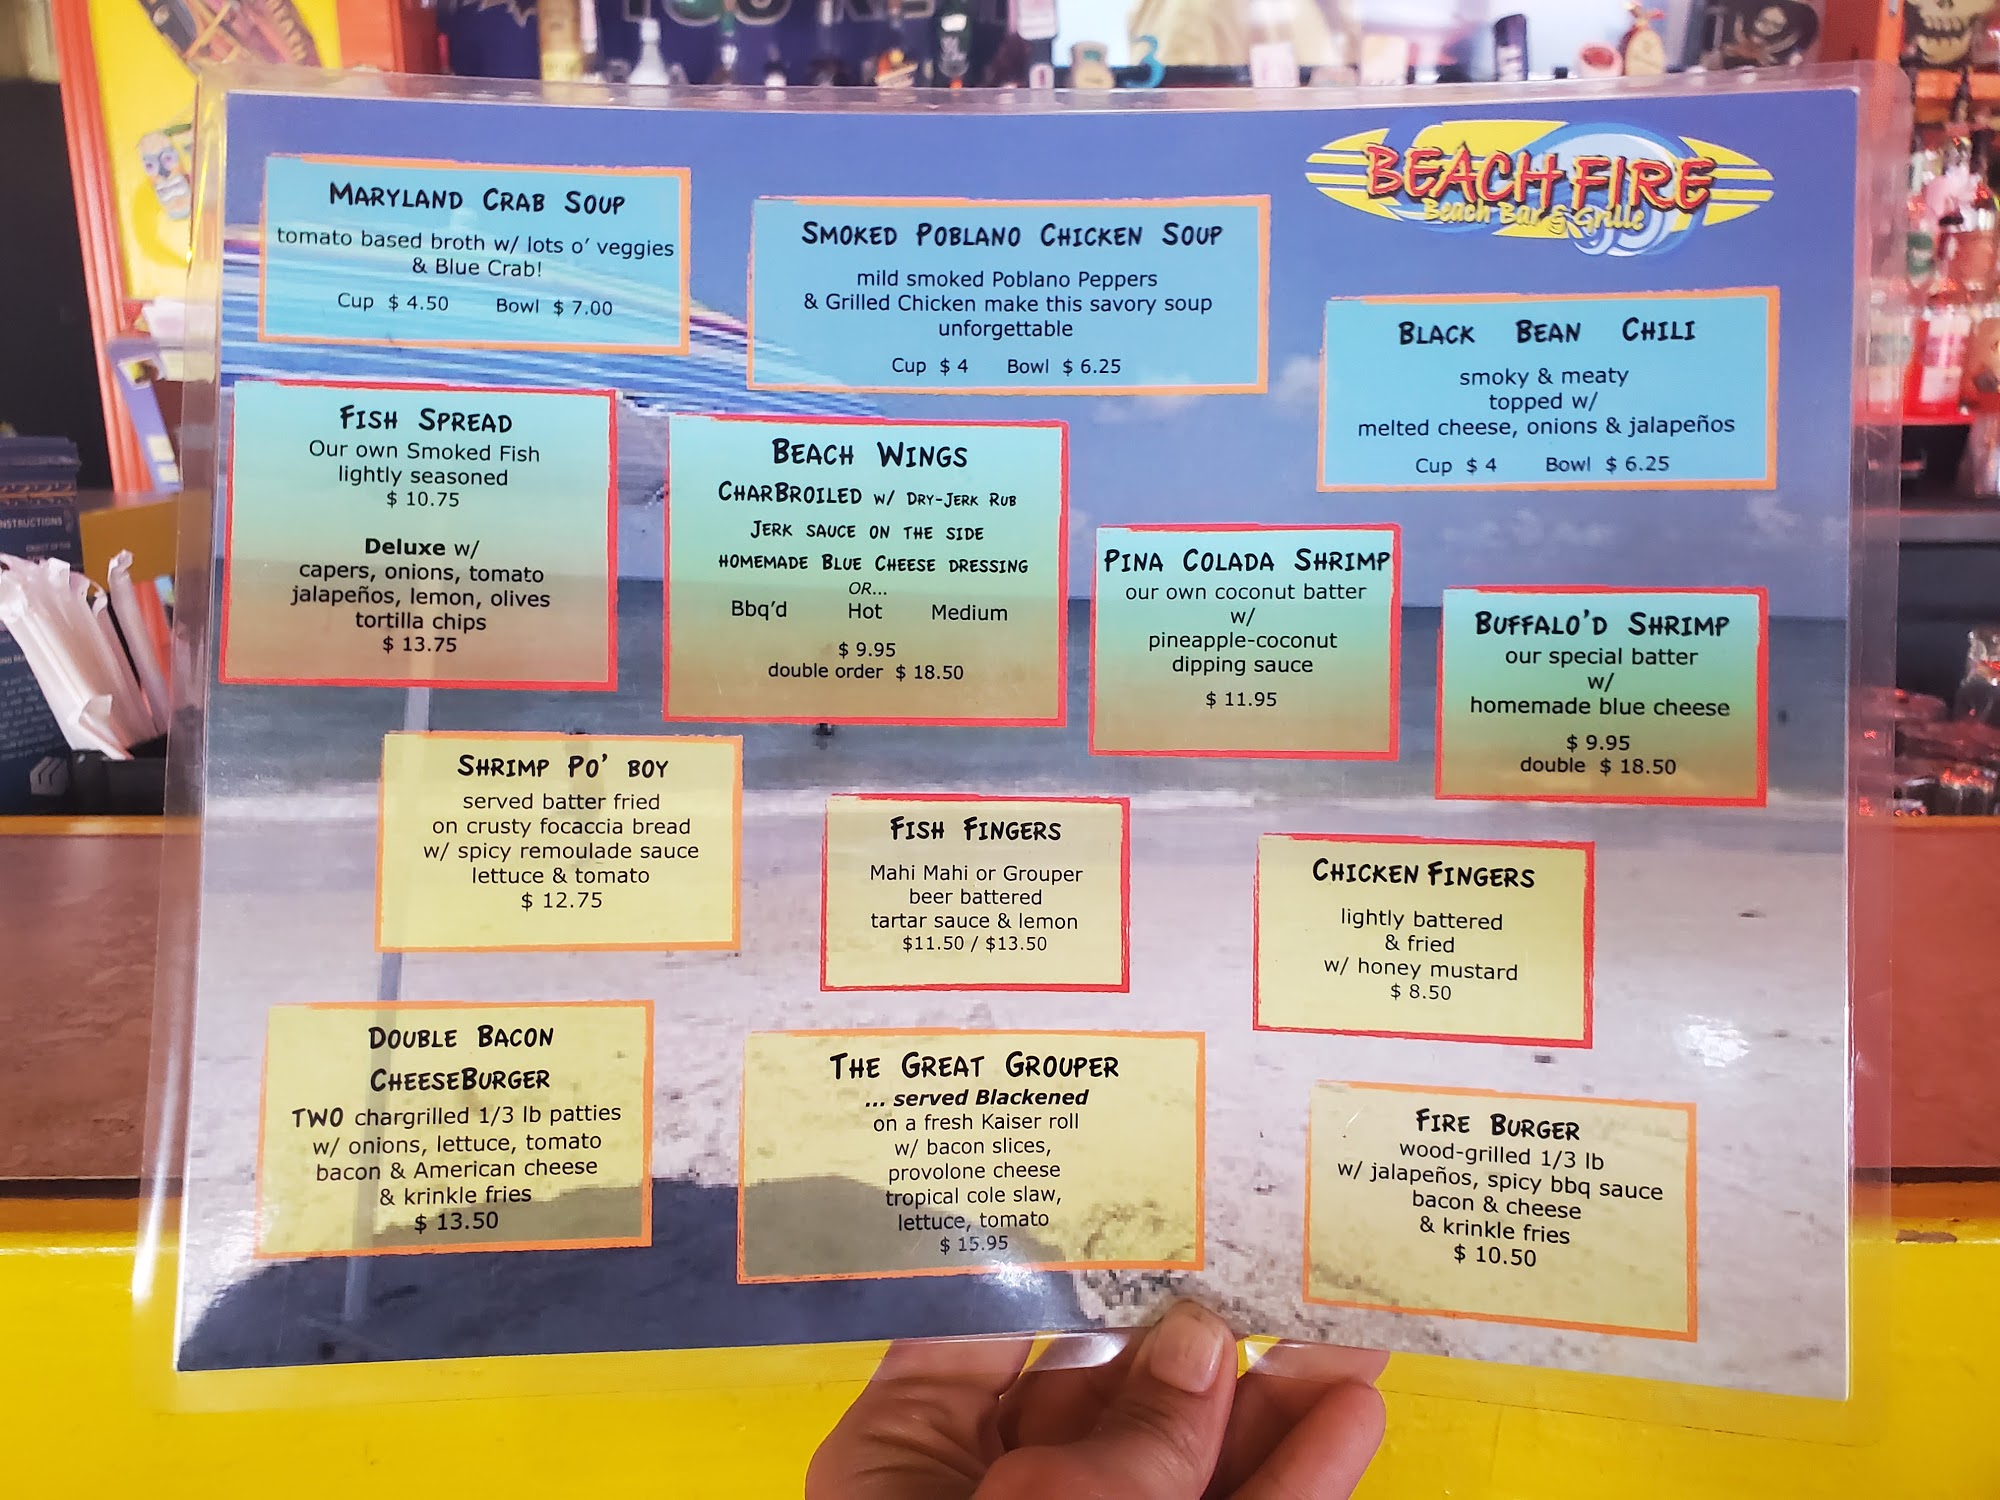 BEACH FIRE
Beach Bar & Grille
MARYLAND CRAB SOUP
tomato based broth w/ lots o' veggies
& Blue Crab!
Cup $ 4.50 Bowl $ 7.00
SMOKED POBLANO CHICKEN SOUP
mild smoked Poblano Peppers
& Grilled Chicken make this savory soup
unforgettable
Cup $ 4 Bowl $ 6.25
BLACK BEAN CHILI
smoky & meaty
topped w/
melted cheese, onions & jalapeños
Cup $ 4 Bowl $ 6.25
FISH SPREAD
Our own Smoked Fish
lightly seasoned
$ 10.75
Deluxe w/
capers, onions, tomato
jalapeños, lemon, olives
tortilla chips
$ 13.75
BEACH WINGS
CHARBROILED W/ DRY-JERK RUB
JERK SAUCE ON THE SIDE
HOMEMADE BLUE CHEESE DRESSING
OR...
Bbq'd Hot Medium
$ 9.95
double order $ 18.50
PINA COLADA SHRIMP
our own coconut batter
w/
pineapple-coconut
dipping sauce
$ 11.95
BUFFALO'D SHRIMP
our special batter
w/
homemade blue cheese
$ 9.95
double $ 18.50
SHRIMP PO' BOY
served batter fried
on crusty focaccia bread
w/ spicy remoulade sauce
lettuce & tomato
$ 12.75
FISH FINGERS
Mahi Mahi or Grouper
beer battered
tartar sauce & lemon
$11.50 / $13.50
CHICKEN FINGERS
lightly battered
& fried
w/ honey mustard
$ 8.50
DOUBLE BACON
CHEESEBURGER
TWO chargrilled 1/3 lb patties
w/ onions, lettuce, tomato
bacon & American cheese
& krinkle fries
$ 13.50
THE GREAT GROUPER
... served Blackened
on a fresh Kaiser roll
w/ bacon slices,
provolone cheese
tropical cole slaw,
lettuce, tomato
$ 15.95
FIRE BURGER
wood-grilled 1/3 lb
w/ jalapeños, spicy bbq sauce
bacon & cheese
& krinkle fries
$ 10.50
INSTRUCTIONS